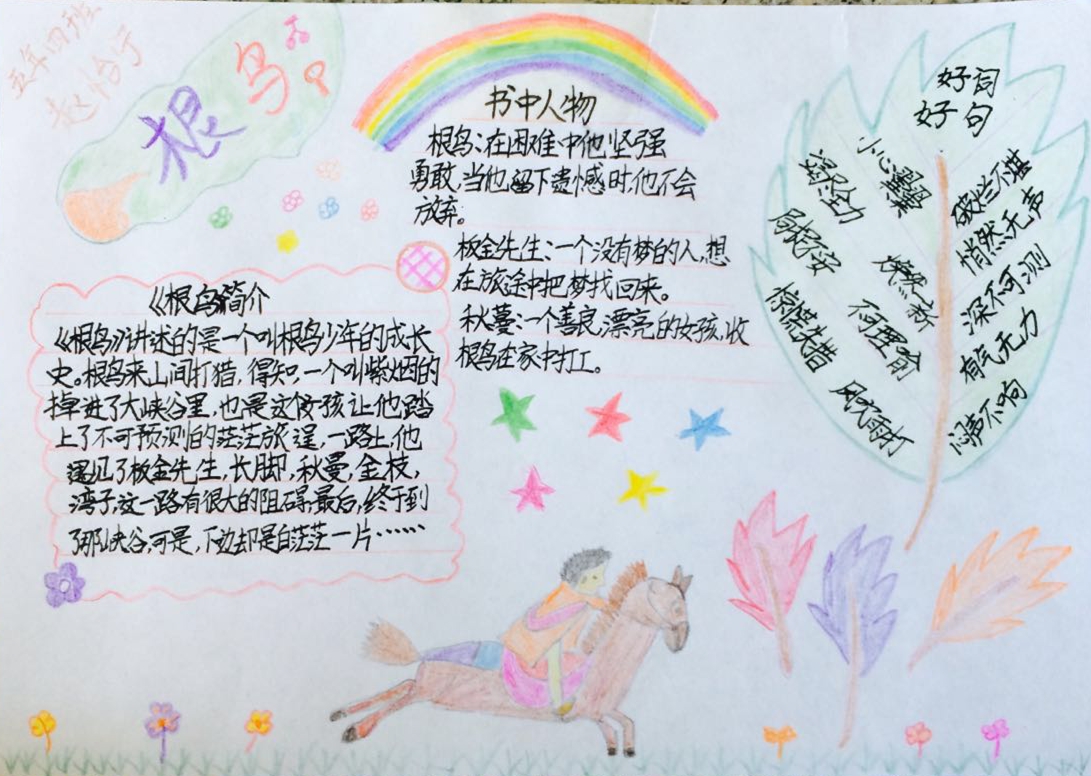 五年四班
赵怡于
根鸟
书中人物
根鸟:在困难中他坚强
勇敢,当他留下遗憾时,他不会
放弃。
板金先生:一个没有梦的人,想
在旅途中把梦找回来。
秋蔓:一个善良,漂亮的女孩,收
根鸟在家中打工。
《根鸟简介
《根鸟》讲述的是一个叫根鸟少年的成长
史。根鸟来山间打猎,得知,一个叫紫烟的
掉进了大峡谷里,也是这女孩让他踏
上了不可预测的茫茫旅途,一路上,他
遇见了板金先生,长脚,秋曼,金枝,
湾子,这一路有很大的阻碍,最后,终于到
了那峡谷,可是,下边却是白茫茫一片……
好词
好句
小心翼翼
竭尽全力
局促不安
焕然一新
惊慌失措
不可理喻
风吹雨打
破烂不堪
悄然无声
深不可测
有气无力
闷声不响